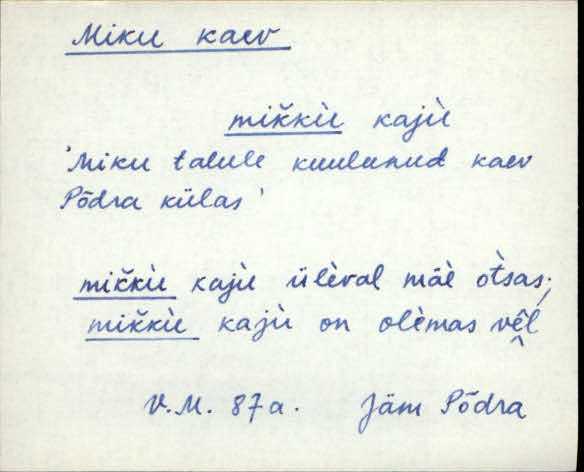 Miku kaev
mik̆kù kajù
'Miku talule kuulunud kaev
Põdra külas'
mik̆kù kajù ülèval mäè òtsas;
mik̆kù kajù on olèmas vêl
V.M. 87a. Jäm Põdra